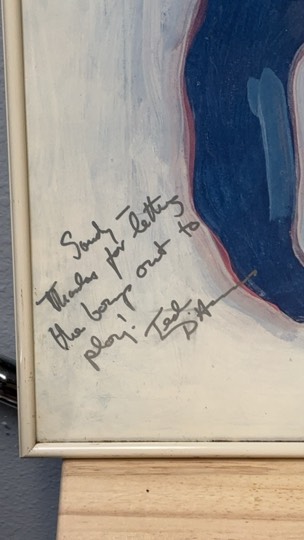 Sandy -
Thanks for letting
the boys out to
play! Ted